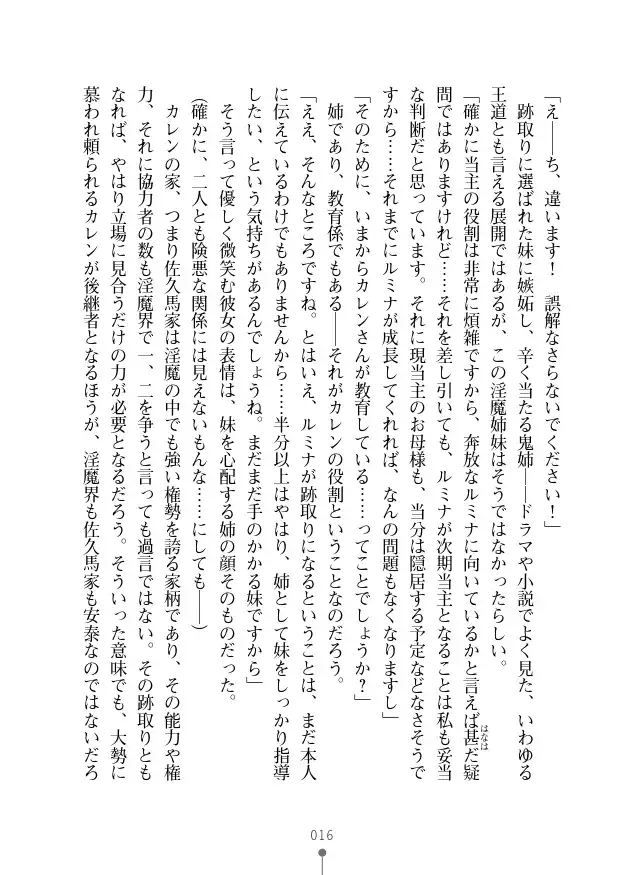 「え――ち、違います！　誤解なさらないでください！」
跡取りに選ばれた妹に嫉妬し、辛く当たる鬼姉――ドラマや小説でよく見た、いわゆる
王道とも言える展開ではあるが、この淫魔姉妹はそうではなかったらしい。
「確かに当主の役割は非常に煩雑ですから、奔放なルミナに向いているかと言えば甚だ疑
はなは
問ではありますけれど……それを差し引いても、ルミナが次期当主となることは私も妥当
な判断だと思っています。それに現当主のお母様も、当分は隠居する予定などなさそうで
すから……それまでにルミナが成長してくれれば、なんの問題もなくなりますし」
「そのために、いまからカレンさんが教育している……ってことでしょうか？」
姉であり、教育係でもある――それがカレンの役割ということなのだろう。
「ええ、そんなところですね。とはいえ、ルミナが跡取りになるということは、まだ本人
に伝えているわけでもありませんから……半分以上はやはり、姉として妹をしっかり指導
したい、という気持ちがあるんでしょうね。まだまだ手のかかる妹ですから」
そう言って優しく微笑む彼女の表情は、妹を心配する姉の顔そのものだった。
（確かに、二人とも険悪な関係には見えないもんな……にしても――）
カレンの家、つまり佐久馬家は淫魔の中でも強い権勢を誇る家柄であり、その能力や権
力、それに協力者の数も淫魔界で一、二を争うと言っても過言ではない。その跡取りとも
なれば、やはり立場に見合うだけの力が必要となるだろう。そういった意味でも、大勢に
慕われ頼られるカレンが後継者となるほうが、淫魔界も佐久馬家も安泰なのではないだろ
016